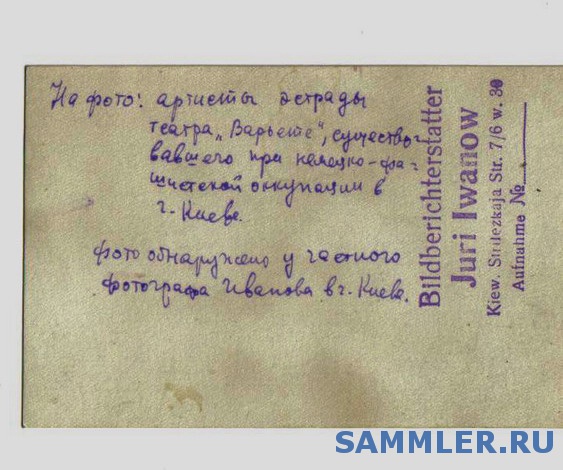 На фото: артисты эстрады
театра „Варьете", существо-
вавшего при немецко-фа-
шистской оккупации в
г. Киеве.
фото обнаружено у частного
фотографа Иванова в г. Киеве.
Bildberichterstatter
Juri Iwanow
Kiew. Strilezkaja Str. 7/6 w. 30
Aufnahme №
SAMMLER.RU